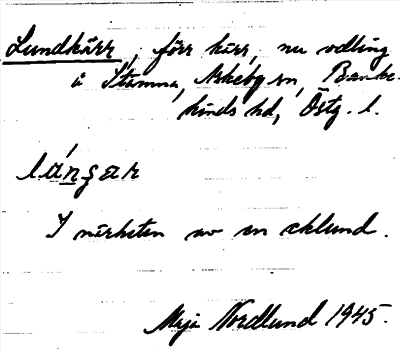 Lundkärr, förr kärr, nu odling
å Stamna, Askeby sn, Banke-
kinds hd, Östg. l.
I närheten av en eklund.
Maja Nordlund 1945.